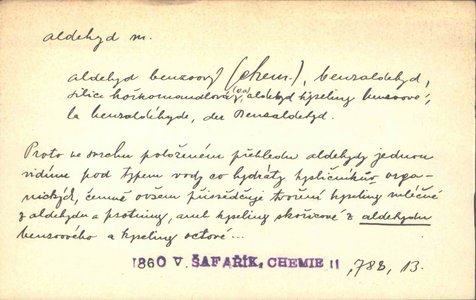 aldehyd m.
aldehyd benzoový (chem.), benzaldehyd,
silice hořkomandlová, aldehyd kyseliny benzoové;
la benzaldéhyde, der Benzaldehyd.
Proto ve svrchu položeném přehledu aldehydy jednou
vidíme pod typem vody co hydráty kysličníkův orga-
nických, čemuž ovšem přisvědčuje tvoření kyseliny mléčné
z aldehydu a protiny, aneb kyseliny skořicové z aldehydu
benzoového a kyseliny octové...
1860 V. ŠAFAŘÍK, CHEMIE II, 788, 13.